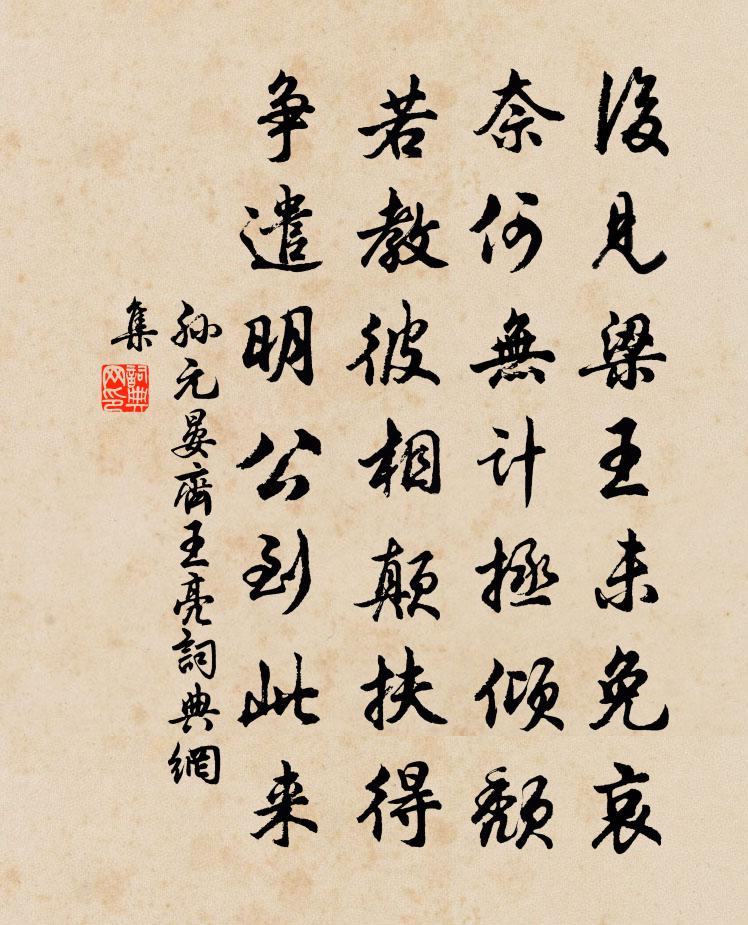 後見梁王未免哀
奈何無計拯傾頹
若教彼相顛扶得
爭遣明公到此来
孫元晏齊王亮詞典網
集
詞典
网印